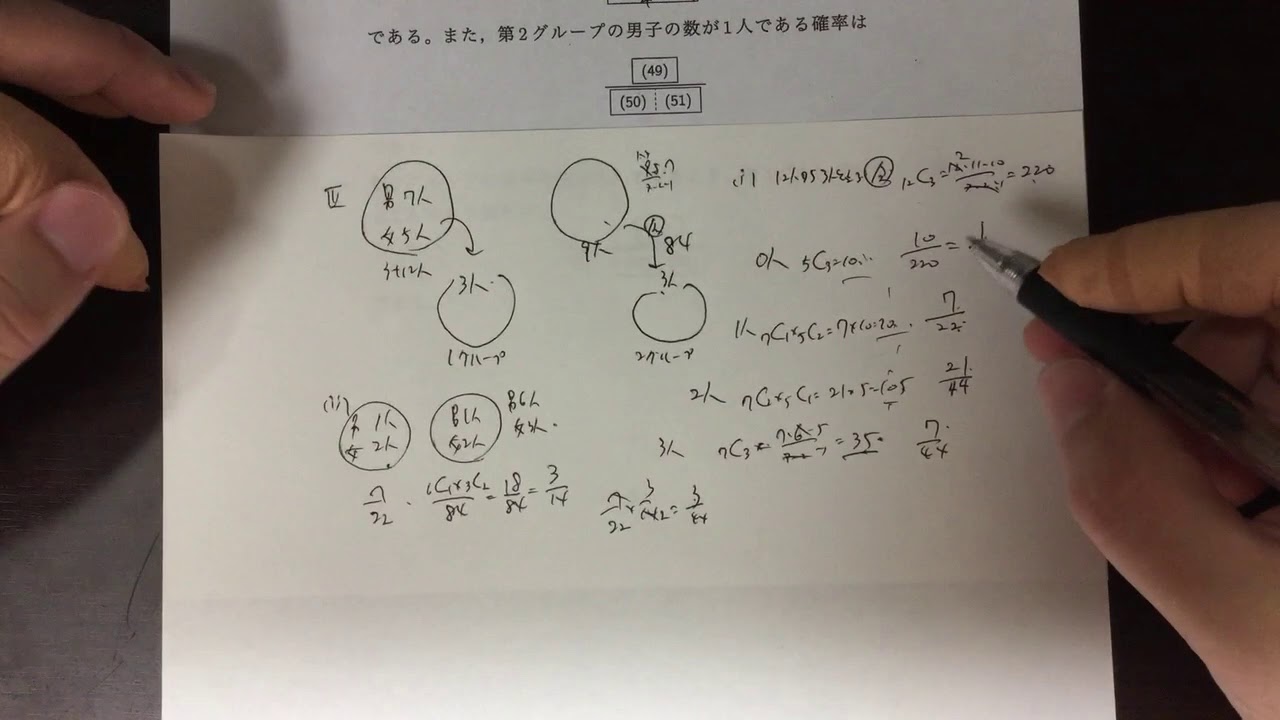 である。また，第2グループの男子の数が1人である確率は
(49)
(50) (51)
Ⅳ
男7人
女5人
計12人
3人
1グループ
9人
84
3人
2グループ
(i) 12人から3人 ₁₂C₃=12・11・10/3・2・1=220
0人 ₅C₃=10 10/220=1
1人 ₇C₁×₅C₂=7×10=70 7/22
2人 ₇C₂×₅C₁=21×5=105 21/44
3人 ₇C₃ 7・6・5 =35 7/44
(ii)
男 1人
女 2人
男1人
女2人
男6人
女3人
7/22 · ₆C₁×₃C₂/84=18/84=3/14
7/22× =3/44